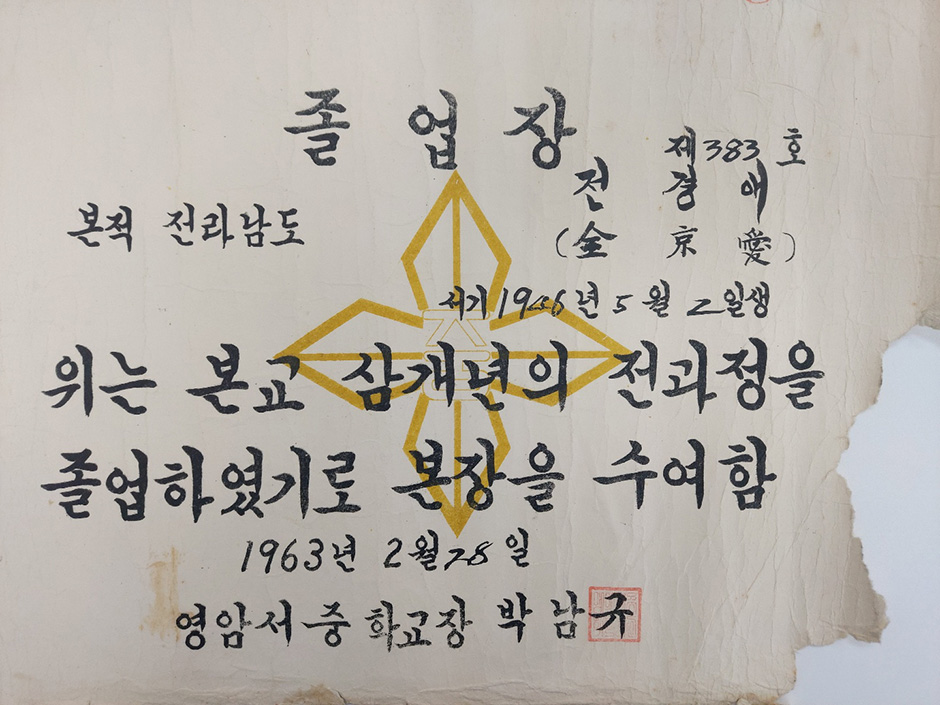 졸업장
제383호
전경애
본적 전라남도
(全京愛)
서기 1946년 5월 2일생
위는 본교 삼개년의 전과정을
졸업하였기로 본장을 수여함
1963년 2월 28일
영암서중학교장 박남규